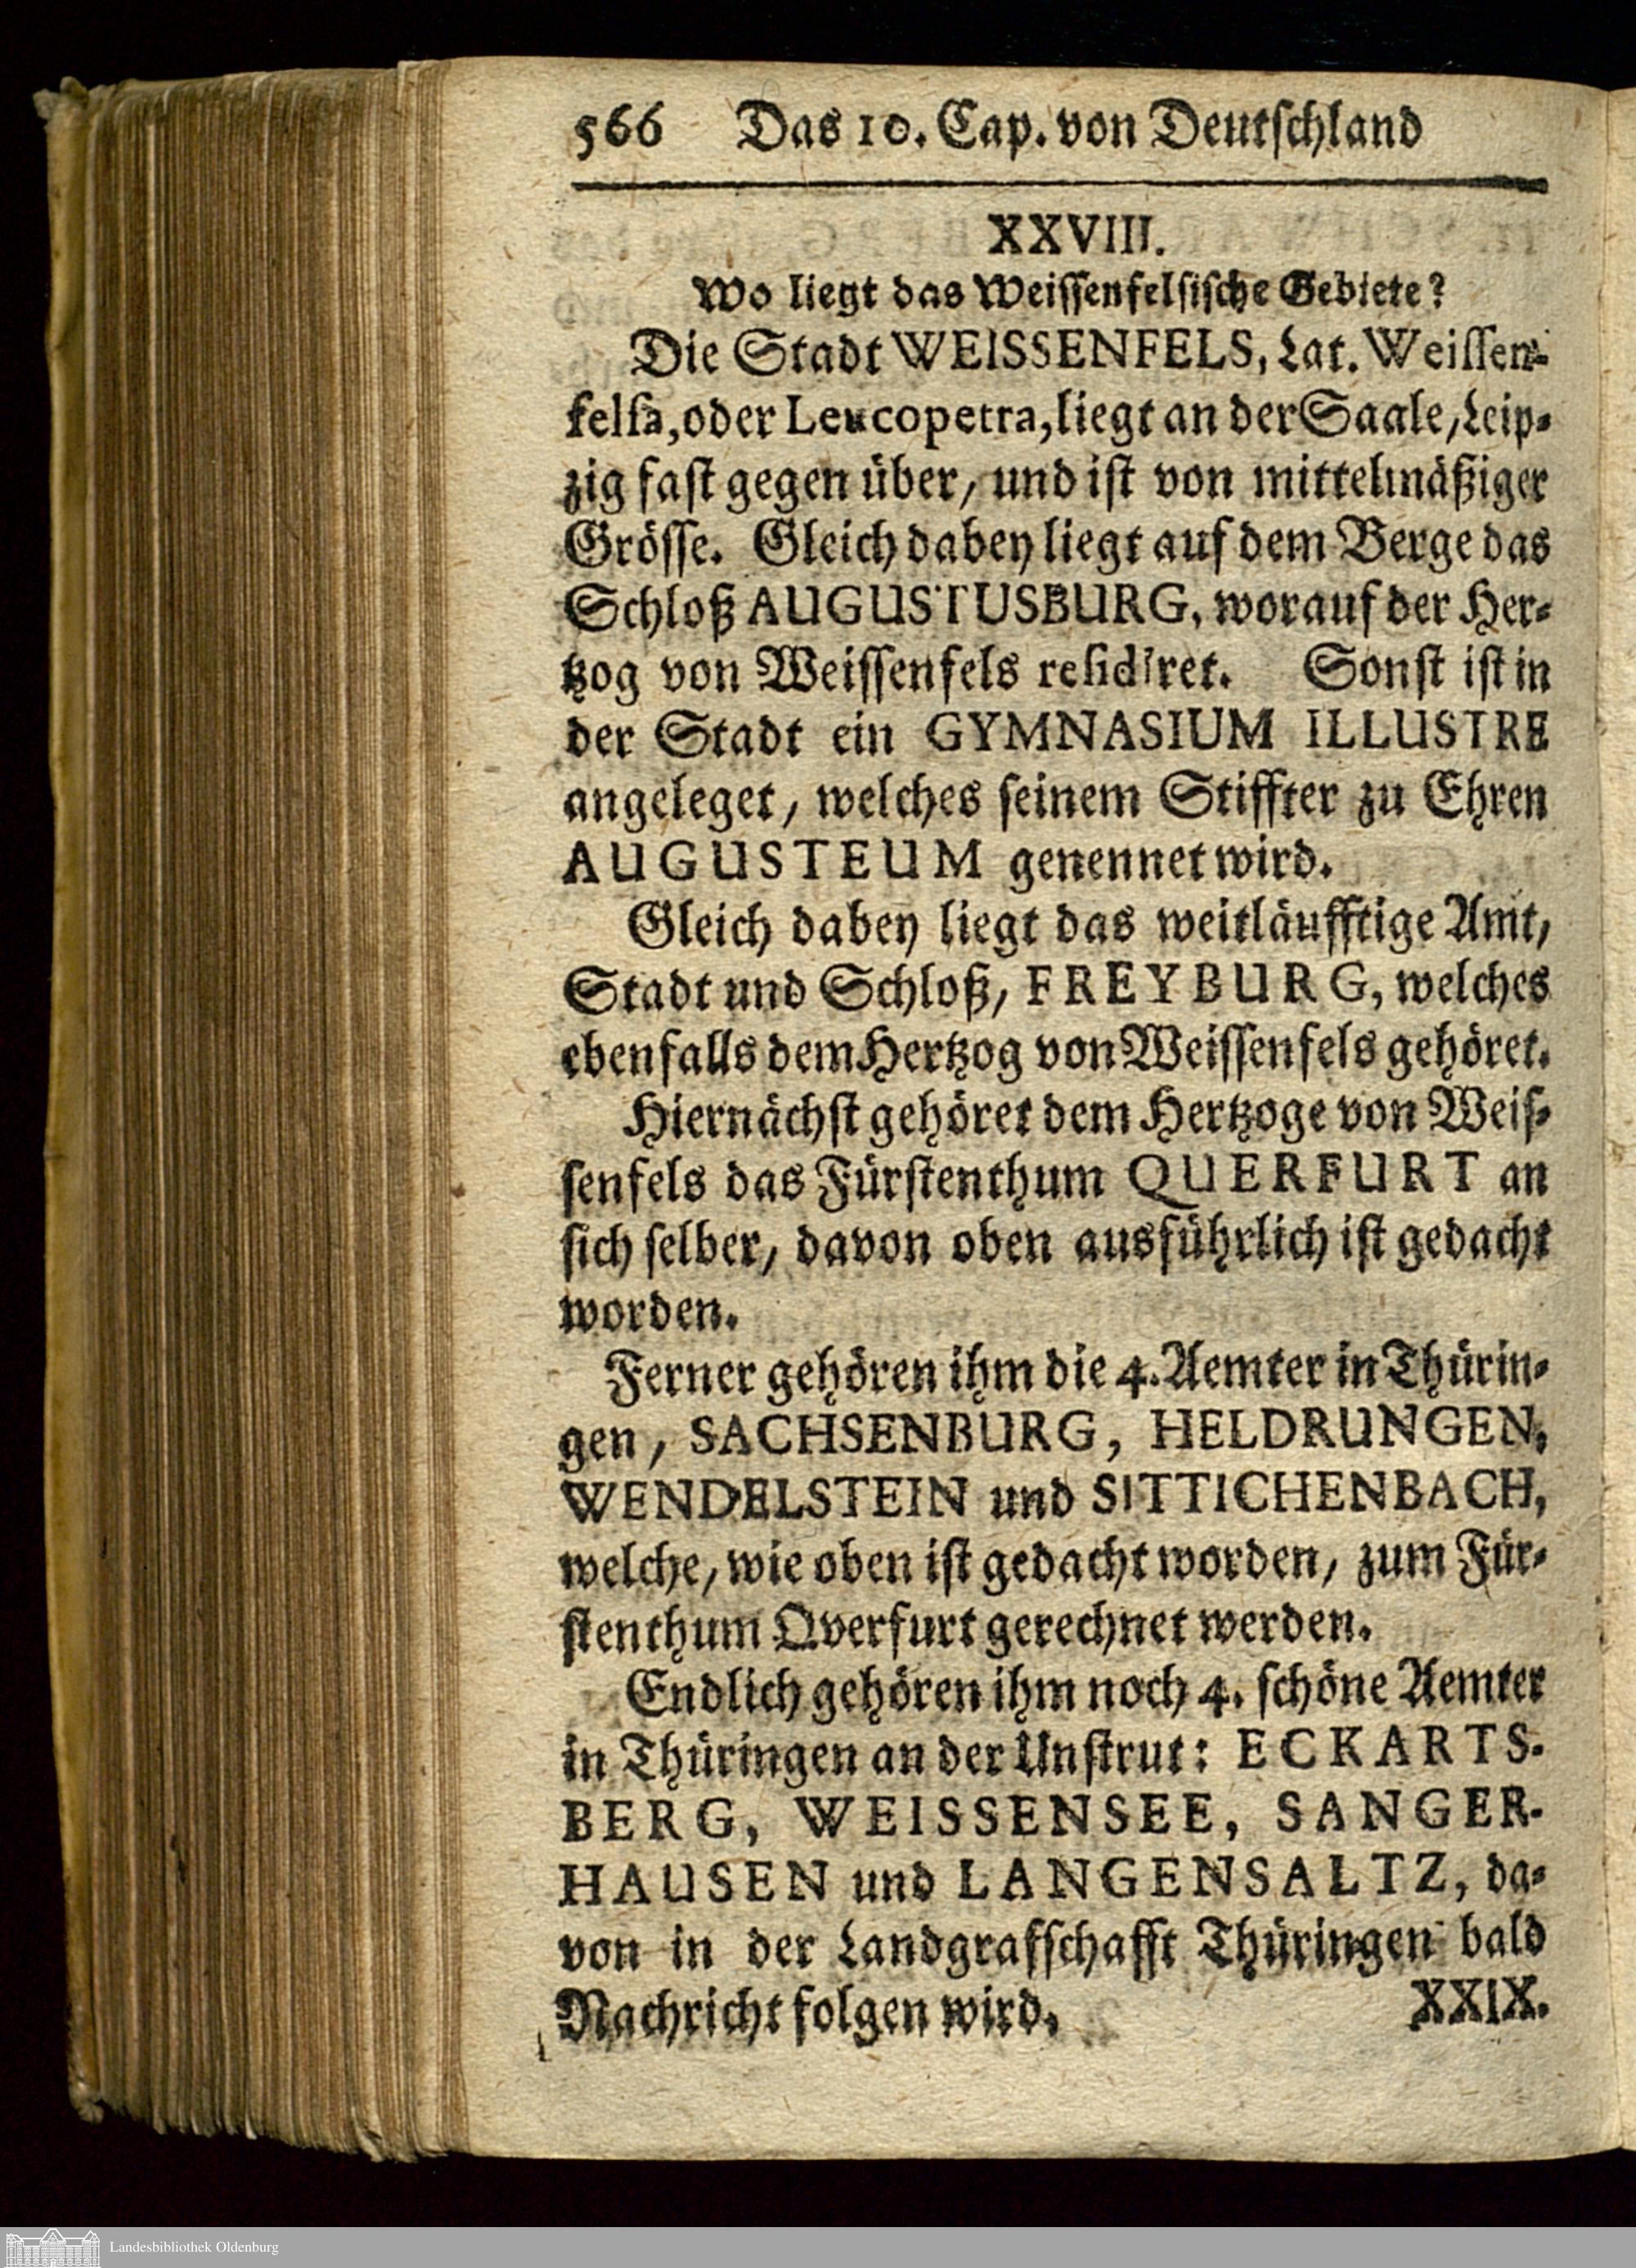 566 Das 10. Cap. von Deutschland
XXVIII.
Wo liegt das Weissenfelsische Gebiete?
Die Stadt WEISSENFELS, Lat. Weissen-
felsa, oder Leucopetra, liegt an der Saale, Leip-
zig fast gegen über, und ist von mittelmäßiger
Grösse. Gleich dabey liegt auf dem Berge das
Schloß AUGUSTUSBURG, worauf der Her-
tzog von Weissenfels residiret. Sonst ist in
der Stadt ein GYMNASIUM ILLUSTRE
angeleget, welches seinem Stiffter zu Ehren
AUGUSTEUM genennet wird.
Gleich dabey liegt das weitläufftige Amt,
Stadt und Schloß, FREYBURG, welches
ebenfalls dem Hertzog von Weissenfels gehöret.
Hiernächst gehöret dem Hertzoge von Weis-
senfels das Fürstenthum QUERFURT an
sich selber, davon oben ausführlich ist gedacht
worden.
Ferner gehören ihm die 4. Aemter in Thürin-
gen, SACHSENBURG, HELDRUNGEN,
WENDELSTEIN und SITTICHENBACH,
welche, wie oben ist gedacht worden, zum Für-
stenthum Qverfurt gerechnet werden.
Endlich gehören ihm noch 4. schöne Aemter
in Thüringen an der Unstrut: ECKARTS-
BERG, WEISSENSEE, SANGER-
HAUSEN und LANGENSALTZ, da-
von in der Landgrafschafft Thüringen bald
Nachricht folgen wird. XXIX.
Landesbibliothek Oldenburg